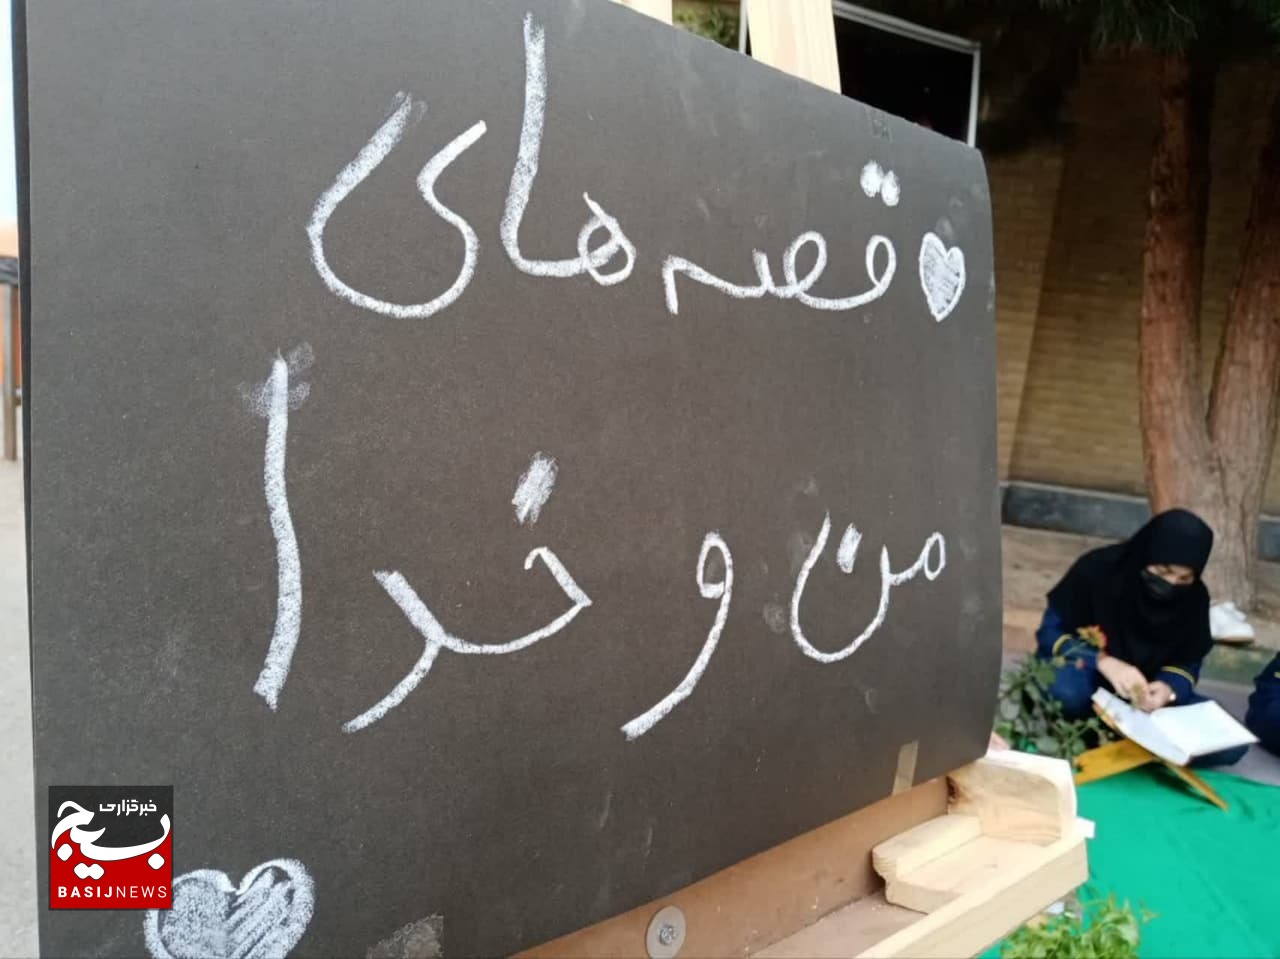 قصه های
من و خدا
خبرگزاری
بسیج
BASIJNEWS